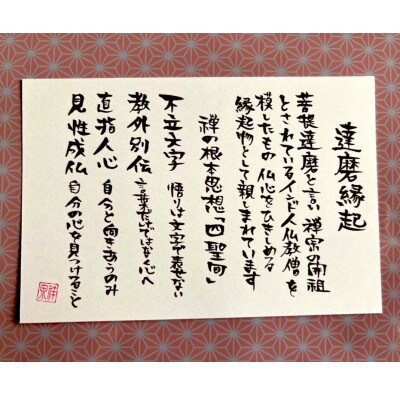 達磨縁起
菩提達磨と言い 禅宗の開祖
とされているインド人仏教僧を
模したもの 仏心をひきしめる
縁起物として親しまれています
禅の根本思想「四聖句」
不立文字 悟りは文字で表せない
教外別伝 言葉だけではなく心へ
直指人心 自分と向きあうのみ
見性成仏 自分の心を見つけること